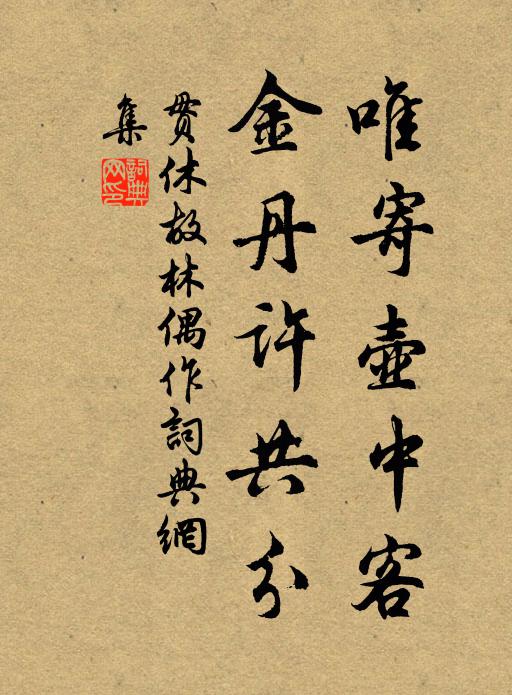 唯寄壺中客
金丹許共分
貫休故林偶作詞典網
集
詞典
网印